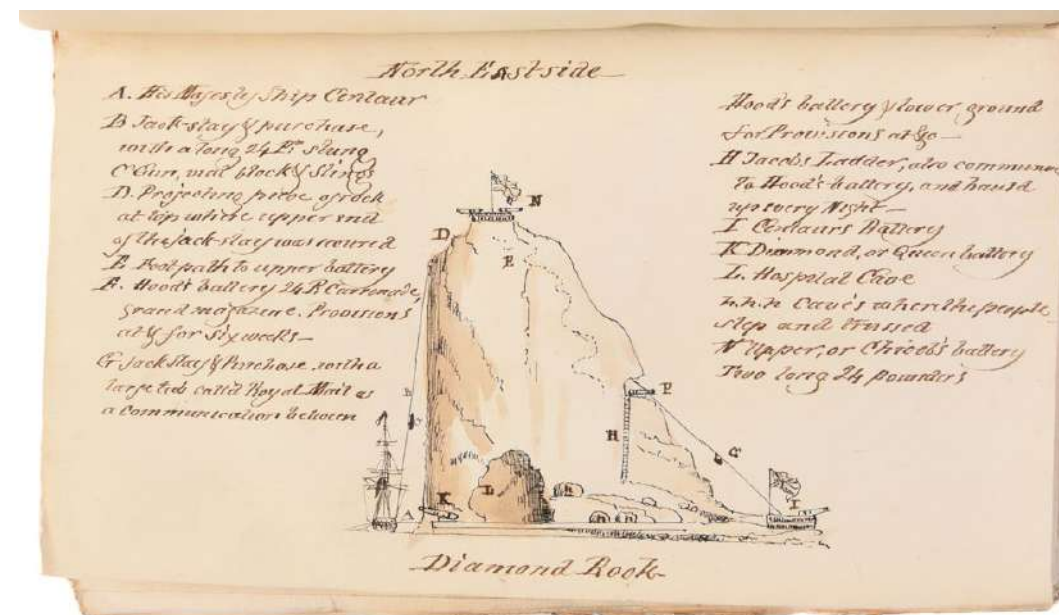 North East side
A. His Majesty Ship Centaur
B Jack-stay & purchase,
with a long 24 Pr. slung
C Gun, viol block & slings
D. Projecting piece of rock
at top where upper end
of the jack-stay was secured
E Foot path to upper battery
F. Hood's battery 24 P. Carronade,
grand magazine. Provisions
at & for six weeks—
G Jack stay & Purchase, with a
large tub call'd Royal Mail as
a Communication between
Hood's battery & lower ground
for Provisions at
H Jacobs Ladder, also commun
to Hood's battery, and haul'd
up every Night—
I Centaurs Battery
K Diamond, or Queen battery
L. Hospital Cave
h.h.h Cave's where the people
slep and Mussed
N Upper, or Chioob's battery
Two long 24 pounders
N
D
E
B
F
H
G
K
L
A
I
h
h
h
Diamond Rock-